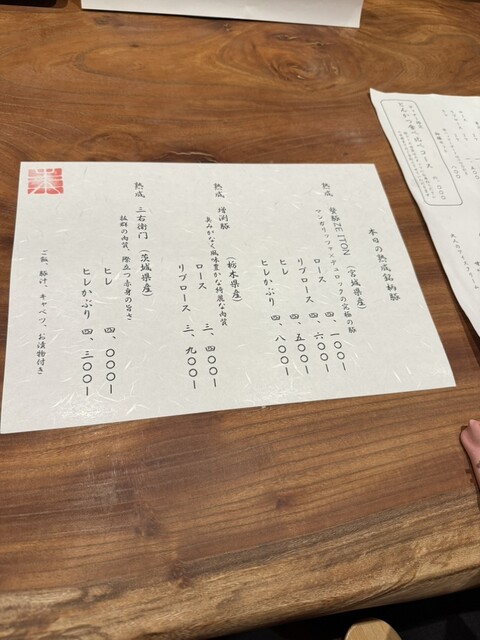 本日の熟成銘柄豚
熟成 豚ZEITON (宮城県産)
マンガリッツァ×デュロックの究極の豚
ロース 四、一〇〇ー
リブロース 四、六〇〇ー
ヒレ 四、五〇〇ー
ヒレかぶり 四、八〇〇ー
熟成 増渕豚 (栃木県産)
臭みがなく風味豊かな綺麗な肉質
ロース 三、四〇〇ー
リブロース 三、九〇〇ー
熟成 三右衛門 (茨城県産)
抜群の肉質、際立つ赤身の旨さ
ヒレ 四、〇〇〇ー
ヒレかぶり 四、三〇〇ー
ご飯、豚汁、キャベツ、お漬物付き
とんかつ食べ比べコース